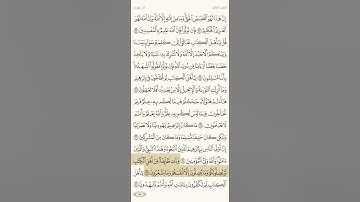 الجزء الثالث آل عمران
إِنَّ هَٰذَا لَهُوَ ٱلْقَصَصُ ٱلْحَقُّ وَمَا مِنْ إِلَٰهٍ إِلَّا ٱللَّهُ وَإِنَّ ٱللَّهَ لَهُوَ
ٱلْعَزِيزُ ٱلْحَكِيمُ ٦٢ فَإِن تَوَلَّوْا۟ فَإِنَّ ٱللَّهَ عَلِيمٌۢ بِٱلْمُفْسِدِينَ ٦٣
قُلْ يَٰٓأَهْلَ ٱلْكِتَٰبِ تَعَالَوْا۟ إِلَىٰ كَلِمَةٍ سَوَآءٍۭ بَيْنَنَا
وَبَيْنَكُمْ أَلَّا نَعْبُدَ إِلَّا ٱللَّهَ وَلَا نُشْرِكَ بِهِۦ شَيْـًٔا وَلَا يَتَّخِذَ
بَعْضُنَا بَعْضًا أَرْبَابًا مِّن دُونِ ٱللَّهِ فَإِن تَوَلَّوْا۟ فَقُولُوا۟ ٱشْهَدُوا۟
بِأَنَّا مُسْلِمُونَ ٦٤ يَٰٓأَهْلَ ٱلْكِتَٰبِ لِمَ تُحَآجُّونَ فِىٓ إِبْرَٰهِيمَ
وَمَآ أُنزِلَتِ ٱلتَّوْرَىٰةُ وَٱلْإِنجِيلُ إِلَّا مِنۢ بَعْدِهِۦٓ أَفَلَا تَعْقِلُونَ ٦٥
هَٰٓأَنتُمْ هَٰٓؤُلَآءِ حَٰجَجْتُمْ فِيمَا لَكُم بِهِۦ عِلْمٌ فَلِمَ
تُحَآجُّونَ فِيمَا لَيْسَ لَكُم بِهِۦ عِلْمٌ وَٱللَّهُ يَعْلَمُ وَأَنتُمْ
لَا تَعْلَمُونَ ٦٦ مَا كَانَ إِبْرَٰهِيمُ يَهُودِيًّا وَلَا نَصْرَانِيًّا
وَلَٰكِن كَانَ حَنِيفًا مُّسْلِمًا وَمَا كَانَ مِنَ ٱلْمُشْرِكِينَ ٦٧
إِنَّ أَوْلَى ٱلنَّاسِ بِإِبْرَٰهِيمَ لَلَّذِينَ ٱتَّبَعُوهُ وَهَٰذَا ٱلنَّبِىُّ وَٱلَّذِينَ
ءَامَنُوا۟ وَٱللَّهُ وَلِىُّ ٱلْمُؤْمِنِينَ ٦٨ وَدَّت طَّآئِفَةٌ مِّنْ أَهْلِ ٱلْكِتَٰبِ
لَوْ يُضِلُّونَكُمْ وَمَا يُضِلُّونَ إِلَّآ أَنفُسَهُمْ وَمَا يَشْعُرُونَ ٦٩ يَٰٓأَهْلَ
ٱلْكِتَٰبِ لِمَ تَكْفُرُونَ بِـَٔايَٰتِ ٱللَّهِ وَأَنتُمْ تَشْهَدُونَ ٧٠